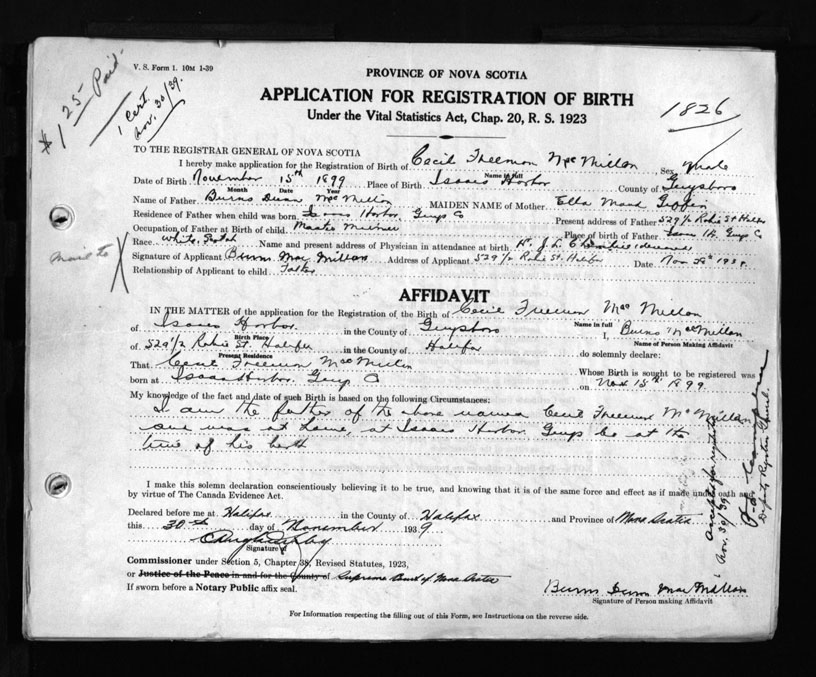 V. S. Form 1. 10M 1-39
$1.25 Paid
1 Cert.
Nov. 30/39.
PROVINCE OF NOVA SCOTIA
APPLICATION FOR REGISTRATION OF BIRTH
Under the Vital Statistics Act, Chap. 20, R. S. 1923
1826
TO THE REGISTRAR GENERAL OF NOVA SCOTIA
I hereby make application for the Registration of Birth of Cecil Freeman MacMillan Sex Male
Name in full
Date of Birth November 15th 1899 Place of Birth Isaacs Harbor County of Guysboro
Month Date Year
Name of Father Burns MacMillan MAIDEN NAME of Mother Ella Maud Giffin
Residence of Father when child was born Isaacs Harbor. Guys Co Present address of Father 529 1/2 Robie St Halifax
Occupation of Father at Birth of child Master Mariner Place of birth of Father Isaacs Hr. Guys Co
Race White Scotch Name and present address of Physician in attendance at birth
mail to
Signature of Applicant Burns MacMillan Address of Applicant 529 1/2 Robie St. Halifax Date Nov
Relationship of Applicant to child Father
AFFIDAVIT
IN THE MATTER of the application for the Registration of the Birth of Cecil Freeman MacMillan
Name in full
of Isaacs Harbor in the County of Guysboro I, Burns MacMillan
Birth Place Name of Person Making Affidavit
of 529 1/2 Robie St. Halifax in the County of Halifax do solemnly declare:
Present Residence
That Cecil Freeman MacMillan Whose Birth is sought to be registered was
born at Isaacs Harbor. Guys Co on Nov 15th 1899
My knowledge of the fact and date of such Birth is based on the following Circumstances:
I am the father of the above named Cecil Freeman McMillan
and was at home, at Isaacs Harbor. Guys Co at the
time of his birth
I make this solemn declaration conscientiously believing it to be true, and knowing that it is of the same force and effect as if made under oath and
by virtue of The Canada Evidence Act.
Declared before me at Halifax in the County of Halifax and Province of Nova Scotia
this 30th day of November 1939
Signature of
Commissioner under Section 5, Chapter 38, Revised Statutes, 1923,
or Justice of the Peace in and for the County of Supreme Court of Nova Scotia
If sworn before a Notary Public affix seal.
Burns MacMillan
Signature of Person making Affidavit
For Information respecting the filling out of this Form, see Instructions on the reverse side.
Nov. 30/39
Deputy Registrar General.